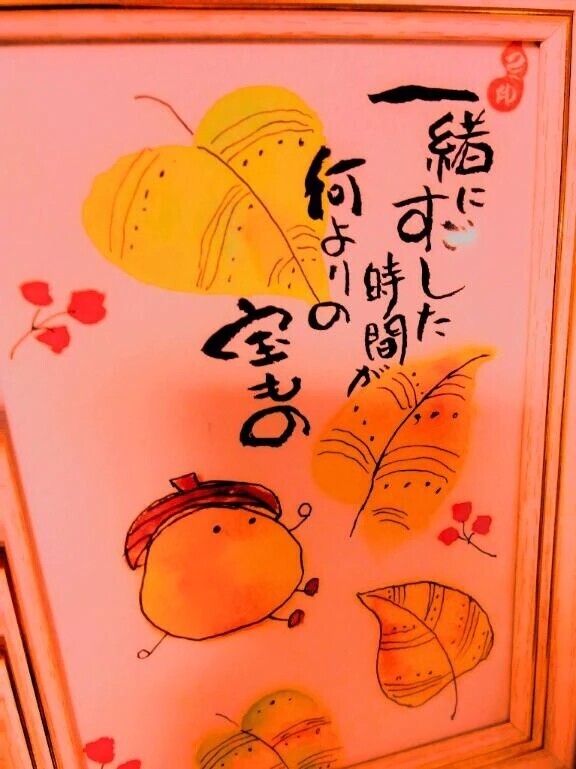 一緒に
すごした
時間が
何よりの
宝もの